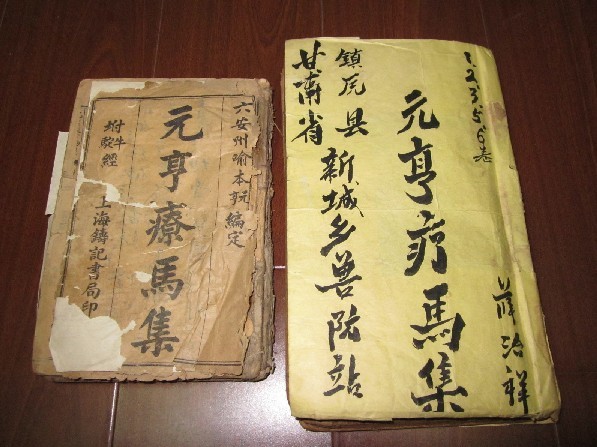 六安州喻本元亨編定
元亨療馬集
附牛駝經
上海鑄記書局印
1.2.3.5.6卷
元亨疗馬集
薛治祥
鎮原县新城乡兽防站
甘肅省